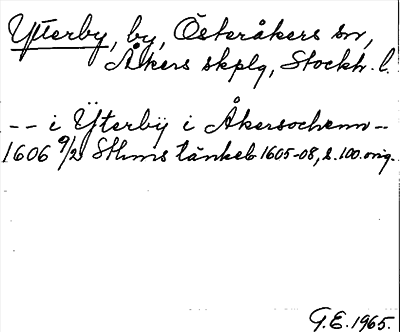 Ytterby, by, Österåkers sn,
Åkers skplg, Stockh. l.
-- i Ÿtterbÿ i Åkersochenn --
1606 9/2 Sthms tänkeb 1605-08, s. 100. orig.
G.E. 1965.